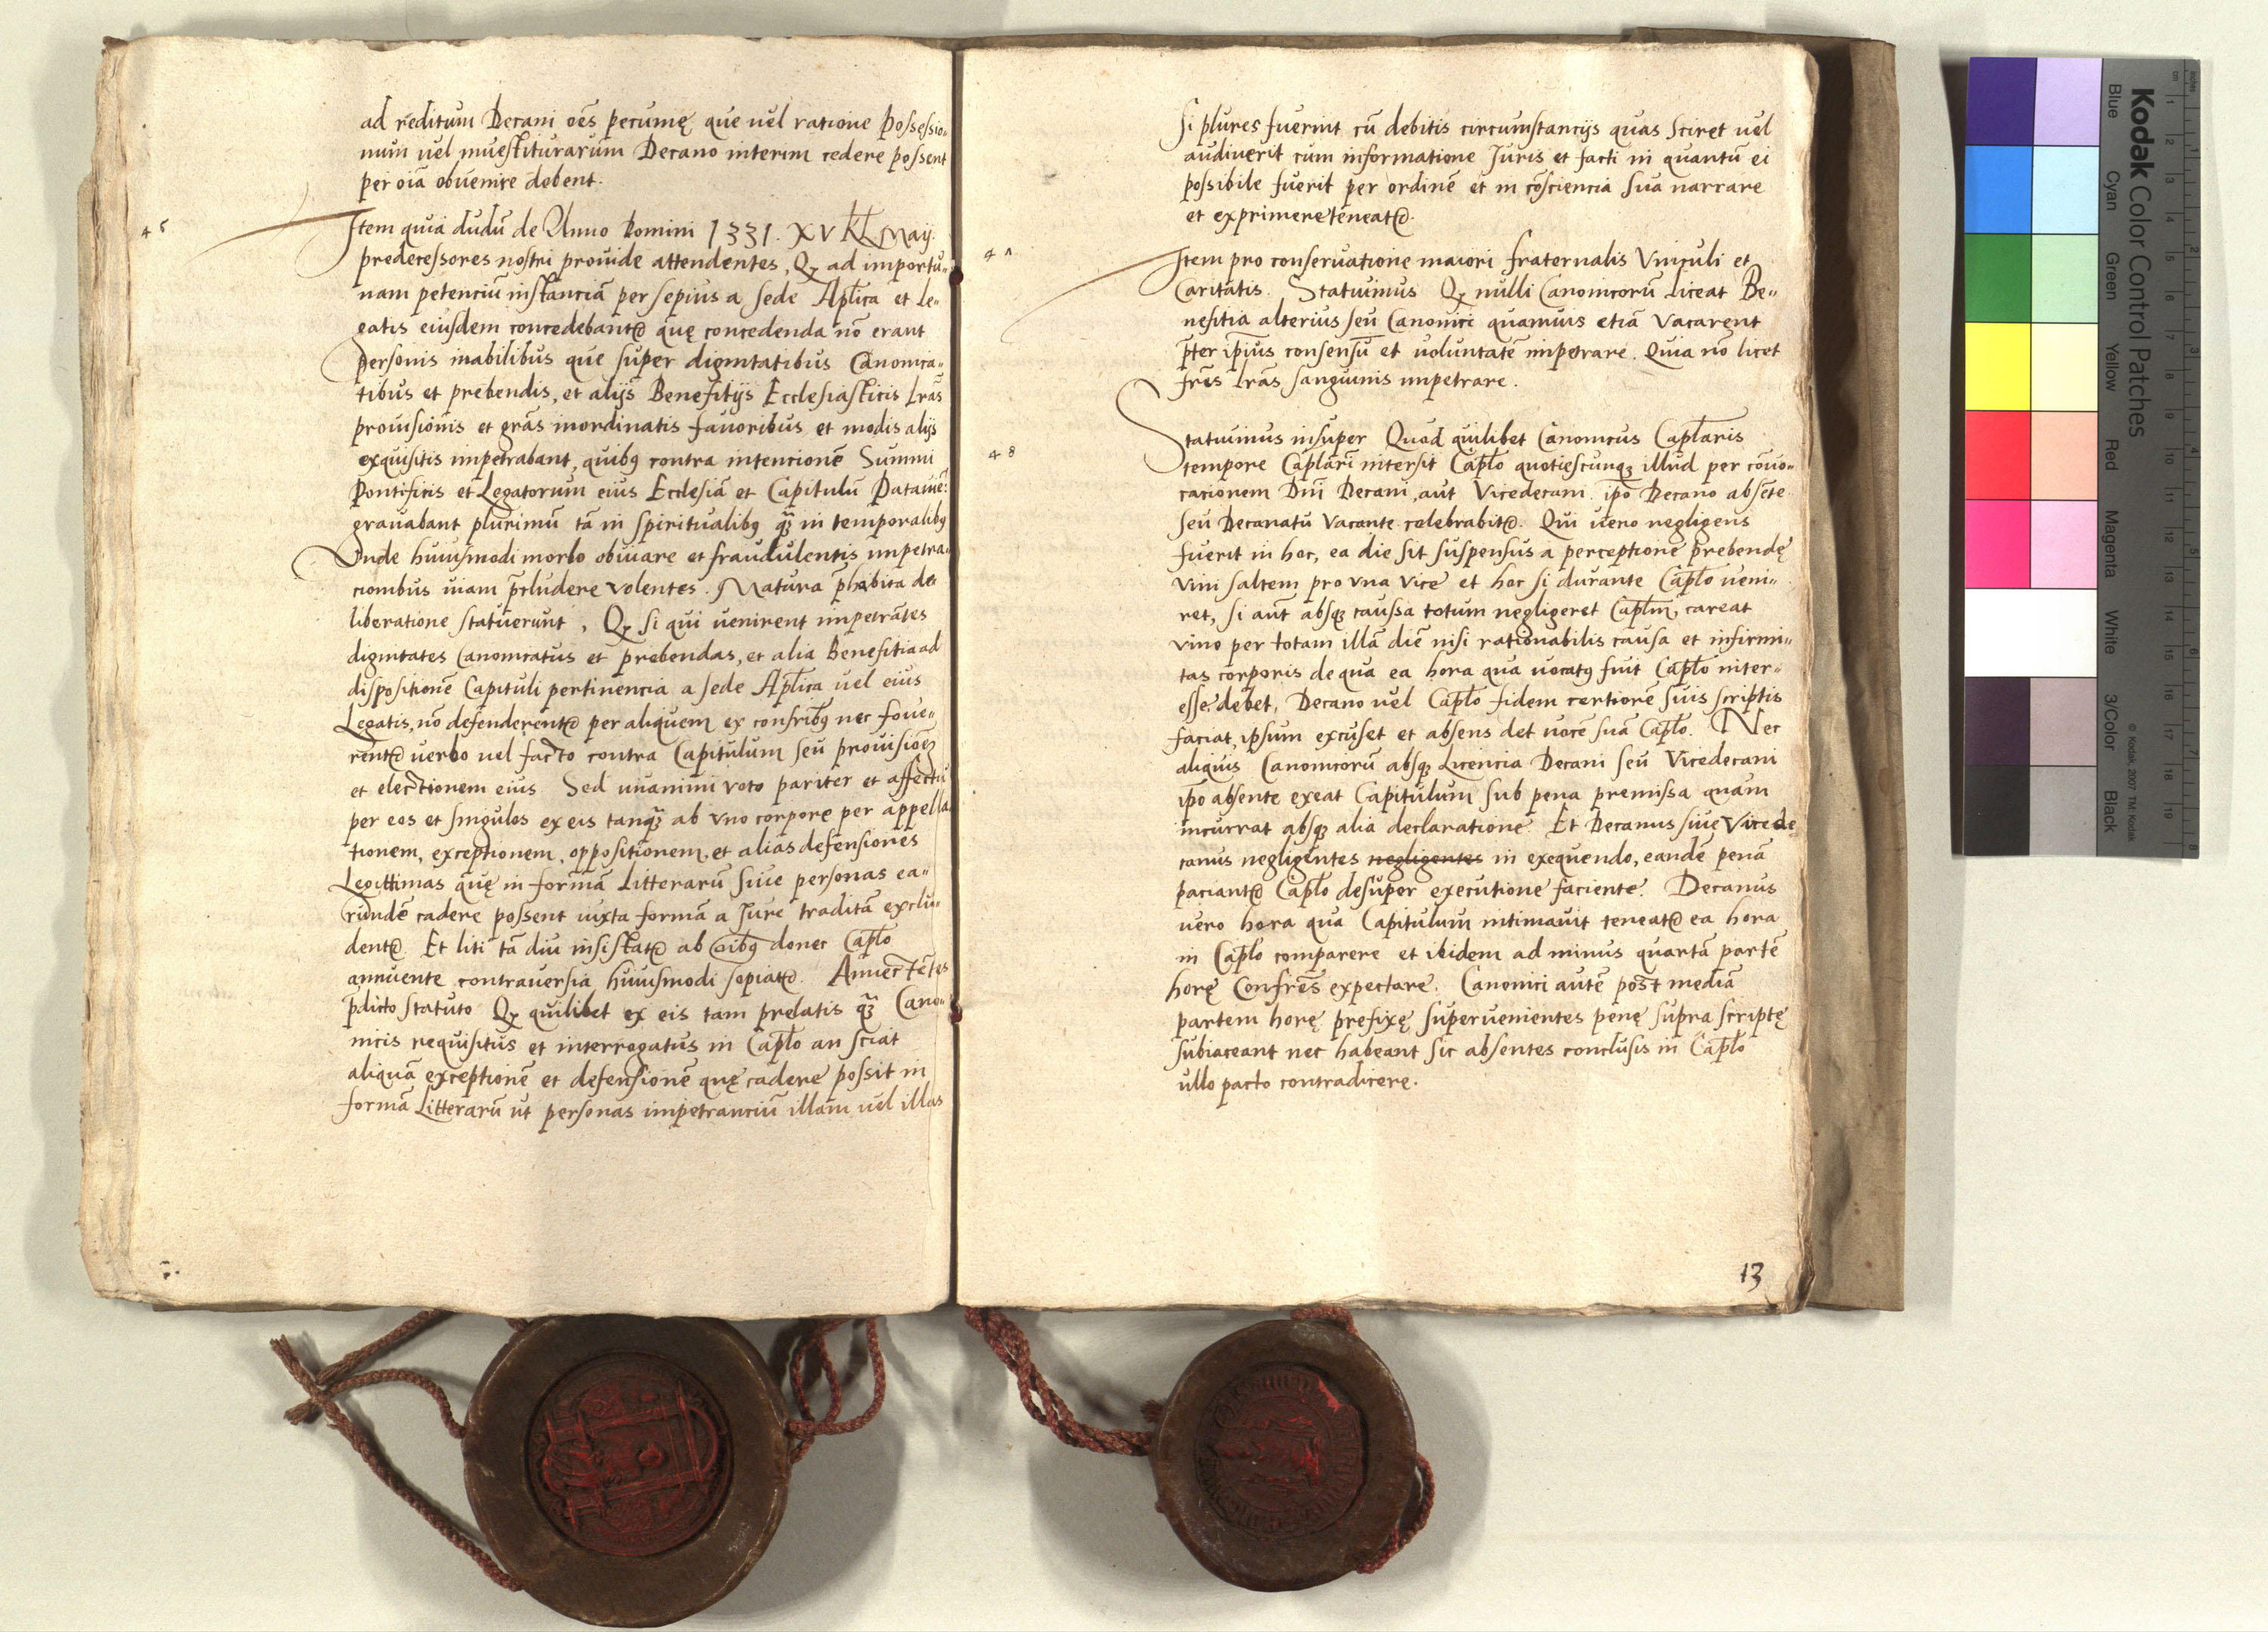 ad reditum Decani oēs pecunię que uel ratione possessio„
num uel inuestiturarum Decano interim cedere possent
per oīa obuenire debent.
45
Item quia dudū de Anno Domini 1331. XV kł May.
predecessores nostri prouide attendentes, Qꝫ ad importu„
nam petenciū instanciā per sepius a sede Ap̄lica et Le„
gatis eiusdem concedebantꝛ quę concedenda nō erant
personis inabilibus que super dignitatibus Canonica„
tibus et prebendis, et alijs Benefitijs Ecclesiasticis Lr̄as
prouisionis et grās inordinatis fauoribus et modis alijs
exquisitis impetrabant, quibꝯ contra intencionē Summi
Pontificis et Legatorum eius Ecclesiā et Capitulū Patauiē:
grauabant plurimū tā in spiritualibꝯ qꝫ in temporalibꝯ
Unde huiusmodi morbo obuiare et fraudulentis impetra„
cionibus uiam p̄cludere volentes. Matura p̄habita de
liberatione statuerunt, Qꝫ si qui uenirent impetrātes
dignitates Canonicatus et prebendas, et alia Benefitia ad
dispositionē Capituli pertinencia a sede Ap̄lica uel eius
Legatis, nō defenderentꝛ per aliquem ex confribꝯ nec foue„
rentꝛ uerbo uel facto contra Capitulum seu prouisionē
et electionem eius. Sed unanimi voto pariter et affectu
per eos et singulos ex eis tanqꝫ ab vno corpore per appella
tionem, exceptionem, oppositionem, et alias defensiones
Legittimas quę in formā Litterarū siue personas ea„
rundē cadere possent iuxta formā a Jure traditā exclu„
dentꝛ. Et liti tā diu insistatꝛ ab oībꝯ donec Cap̄lo
annuente contrauersia huiusmodi sopiatꝛ. Annectētes
p̄dicto statuto Qꝫ quilibet ex eis tam prelatis qꝫ Cano„
nicis requisitus et interrogatus in Cap̄lo an sciat
aliquā exceptionē et defensionē quę cadere possit in
formā Litterarū ut personas impetranciū illam uel illas
Si plures fuerint cū debitis circumstancijs quas sciret uel
audiuerit cum informatione Juris et facti in quantū ei
possibile fuerit per ordinē et in cōsciencia sua narrare
et exprimere teneatꝛ.
Item pro conseruatione maiori fraternalis Vinculi et
Caritatis. Statuimus Qꝫ nulli Canonicorū liceat Be„
nefitia alterius seu Canonici quamuis etiā Vacarent
p̄ter ip̄ius consensū et uoluntatē impetrare. Quia nō licet
fr̄es Lr̄as sanguinis impetrare.
48
Statuimus insuper Quod quilibet Canonicus Cap̄laris
tempore Cap̄lari intersit Cap̄lo quotiescunqꝫ illud per cōuo„
cationem Dn̄i Decani, aut Vicedecani ip̄o Decano absēte
seu Decanatū Vacante celebrabitꝛ. Qui uero negligens
fuerit in hoc, ea die sit suspensus a perceptione prebendę
vini saltem pro vna vice et hoc si durante Cap̄lo ueni„
ret, si aūt absqꝫ caussa totum negligeret Cap̄lm, careat
vino per totam illā diē nisi rationabilis causa et infirmi„
tas corporis de qua ea hora qua uocatꝯ fuit Cap̄lo inter„
esse debet, Decano uel Cap̄lo fidem certiorē suis scriptis
faciat, ipsum excuset et absens det uocē suā Cap̄lo. Nec
aliquis Canonicorū absqꝫ Licencia Decani seu Vicedecani
ip̄o absente exeat Capitulum sub pena premissa quam
incurrat absqꝫ alia declaratione. Et Decanus siue Vicede„
canus negligentes negligentes in exequendo, eandē penā
paciantꝛ Cap̄lo desuper executione faciente. Decanus
uero hora qua Capitulum intimauit teneatꝛ ea hora
in Cap̄lo comparere et ibidem ad minus quartā partē
horę Confrēs expectare. Canonici autē post mediā
partem horę prefixę superuenientes penę supra scriptę
subiaceant nec habeant sic absentes conclusis in Cap̄lo
ullo pacto contradicere.
13
Kodak Color Control Patches
Blue Cyan Green Yellow Red Magenta White 3/Color Black
© Kodak, 2007 TM: Kodak